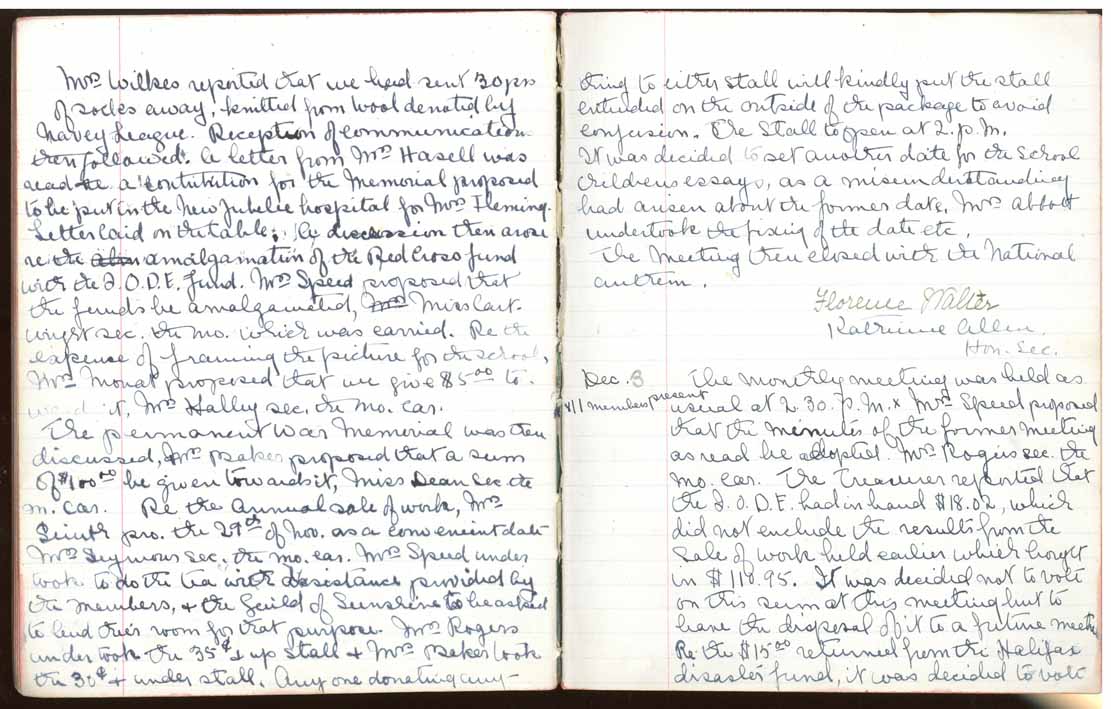 Mrs Wilkes reported that we had sent 30 prs
of socks away, knitted from wool donated by
Navey League. Reception of communication
then followed. A letter from Mrs Hasell was
read re a contribution for the Memorial proposed
to be put in the New Jubilee hospital for Mrs Fleming.
Letter laid on the table; A discussion then arose
re the amalgamation of the Red Cross fund
with the I.O.D.E. fund. Mrs Speed proposed that
the funds be amalgamated, Miss Cart-
wright sec. the mo. which was carried. Re the
expense of framing the picture for the school,
Mrs Monat proposed that we give $5.00 to-
ward it, Mrs Halley sec. the mo. car.
The permanent War Memorial was then
discussed, Mrs Baker proposed that a sum
of $100.00 be given towards it, Miss Dean sec. the
m. car. Re the Annual sale of work, Mrs
Smith pro. the 29th of Nov. as a convenient date
Mrs Seymour sec. the mo. car. Mrs Speed under
took to do the tea with assistance provided by
the members, + the Guild of Sunshine to be asked
to lend their room for that purpose. Mrs Rogers
undertook the 35¢ + up stall + Mrs Baker took
the 30¢ + under stall. Any one donating any-
thing to either stall will kindly put the stall
intended on the outside of the package to avoid
confusion. The Stall to open at 2. p.m.
It was decided to set another date for the School
childrens essays, as a misunderstanding
had arisen about the former date, Mrs Abbott
undertook the fixing of the date etc.
The Meeting then closed with the National
anthem.
Florence Walter
Katrine Allen.
Hon. Sec.
Dec. 3 The monthly meeting was held as
x 11 members present
usual at 2.30. P.M. x Mrs Speed proposed
that the minutes of the former meeting
as read be adopted. Mrs Rogers sec. the
mo. car. The Treasurer reported that
the I.O.D.E. had in hand $18.02, which
did not enclude the results from the
Sale of work held earlier which bought
in $110.95. It was decided not to vote
on this sum at this meeting but to
leave the disposal of it to a future meeting
Re the $15.00 returned from the Halifax
disaster fund, it was decided to vote